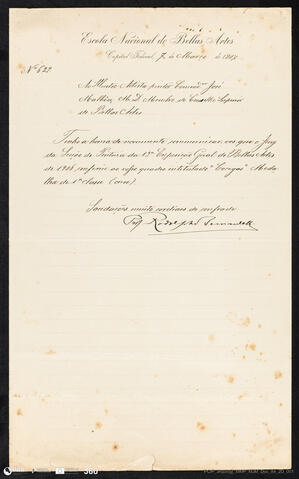 Escola Nacional de Bellas Artes
Capital Federal, 7 de Março de 190
Nº 622
Ao Illustre Artista pintor Commendor José
Malhôa, M. D. Membro do Conselho Superior
de Bellas Artes
Tenho a honra de novamente communicar-vos que o Jury
da Secção de Pintura da 13ª Exposição Geral de Bellas Artes
de 1906, conferio ao vosso quadro intitulado " " Meda
lha de 1ª classe (ouro).
Saudações muito cordiaes do confrade
Prof. Rodolpho Bernardelli
360